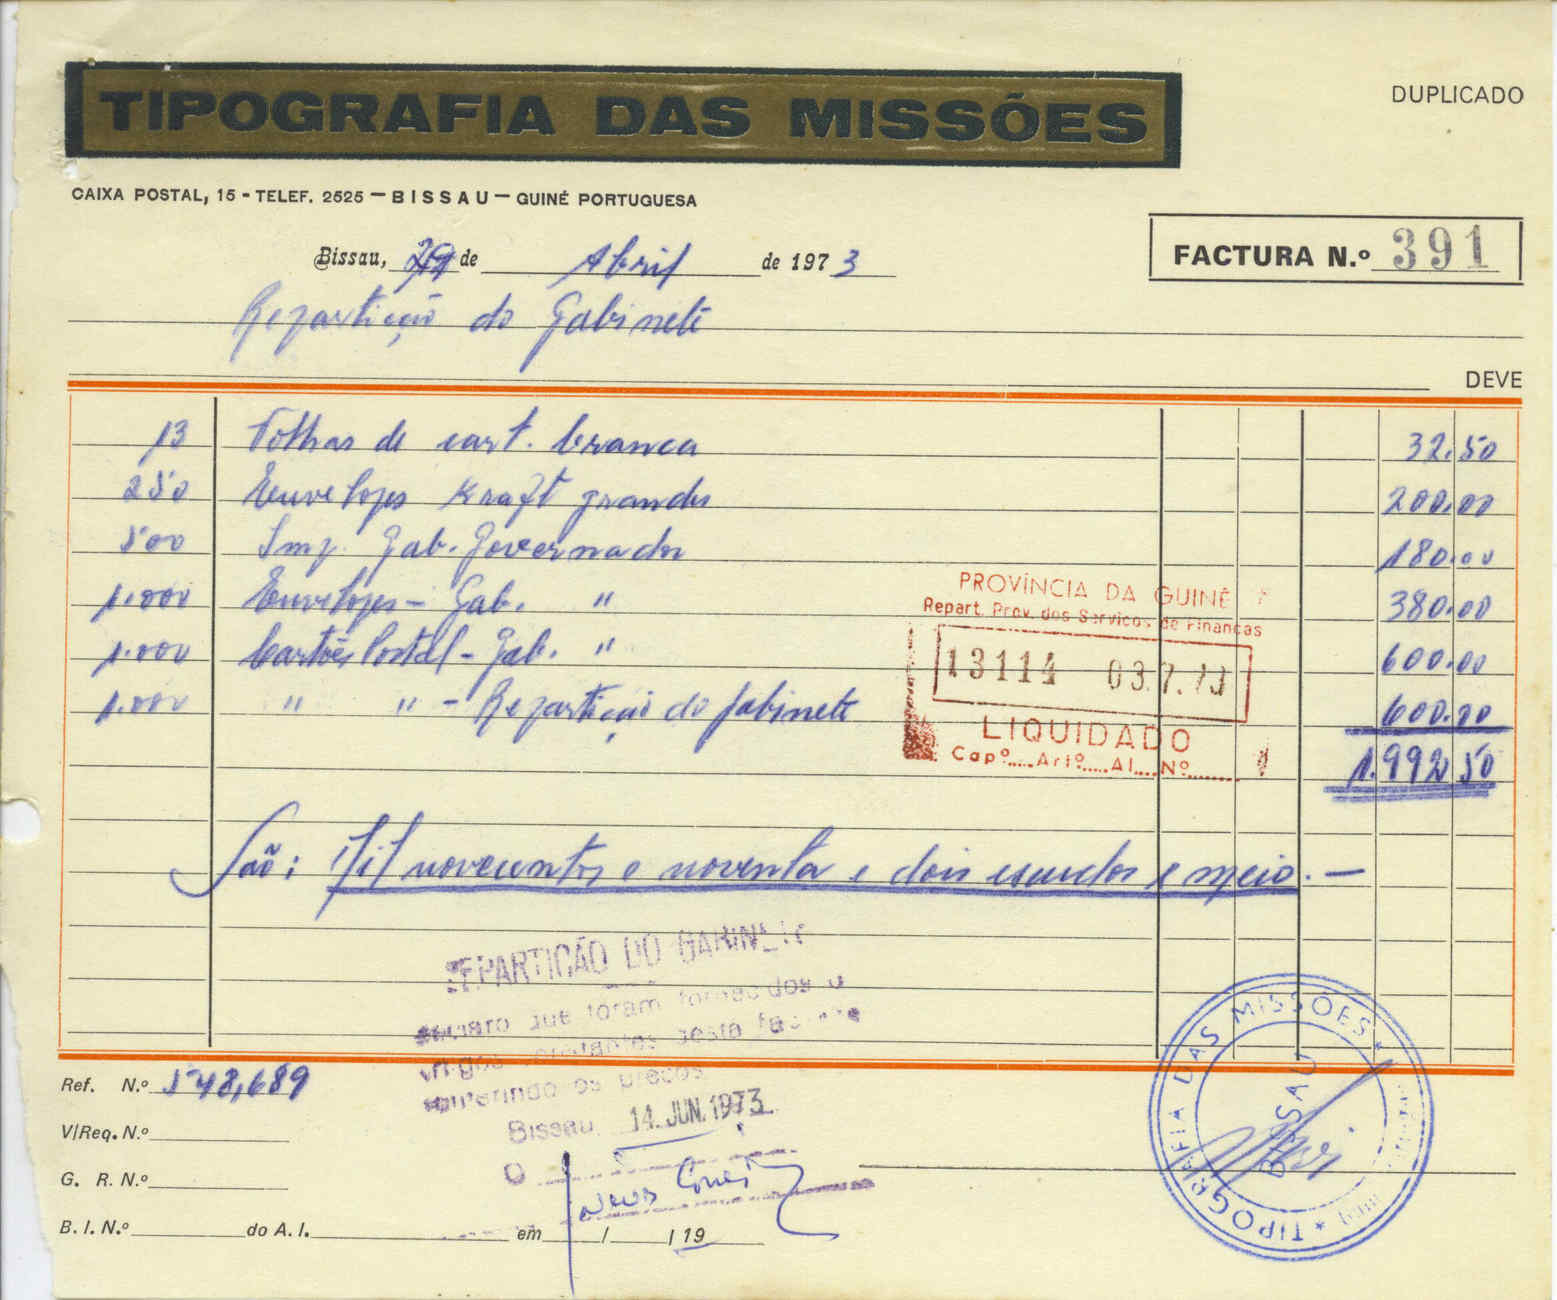 TIPOGRAFIA DAS MISSÕES
DUPLICADO
CAIXA POSTAL, 15 - TELEF. 2525 — BISSAU — GUINÉ PORTUGUESA
FACTURA N.º 391
Bissau, de Abril de 1973
Repartição do Gabinete
DEVE
13 Folhas de cart. branca 32.50
250 Envelopes Kraft grandes 200.00
500 Imp. Gab. Governador 180.00
1.000 Envelopes - Gab. " 380.00
1.000 Cartões Postal - Gab. " 600.00
1.000 " " - Repartição do Gabinete 600.00
1.992 50
PROVÍNCIA DA GUINÉ
Repart. Prov. dos Serviços de Finanças
13114 03.7.73
LIQUIDADO
Capº.... Artº.... Al.... Nº
São: Mil novecentos e noventa e dois escudos e meio. —
REPARTIÇÃO DO GABINETE
que foram fornecidos
constantes desta
os preços
Bissau 14. JUN. 1973
O
Ref. N.º 548,689
V/Req. N.º
G. R. N.º
B. I. N.º do A. I. em / / 19
TIPOGRAFIA DAS MISSÕES
BISSAU